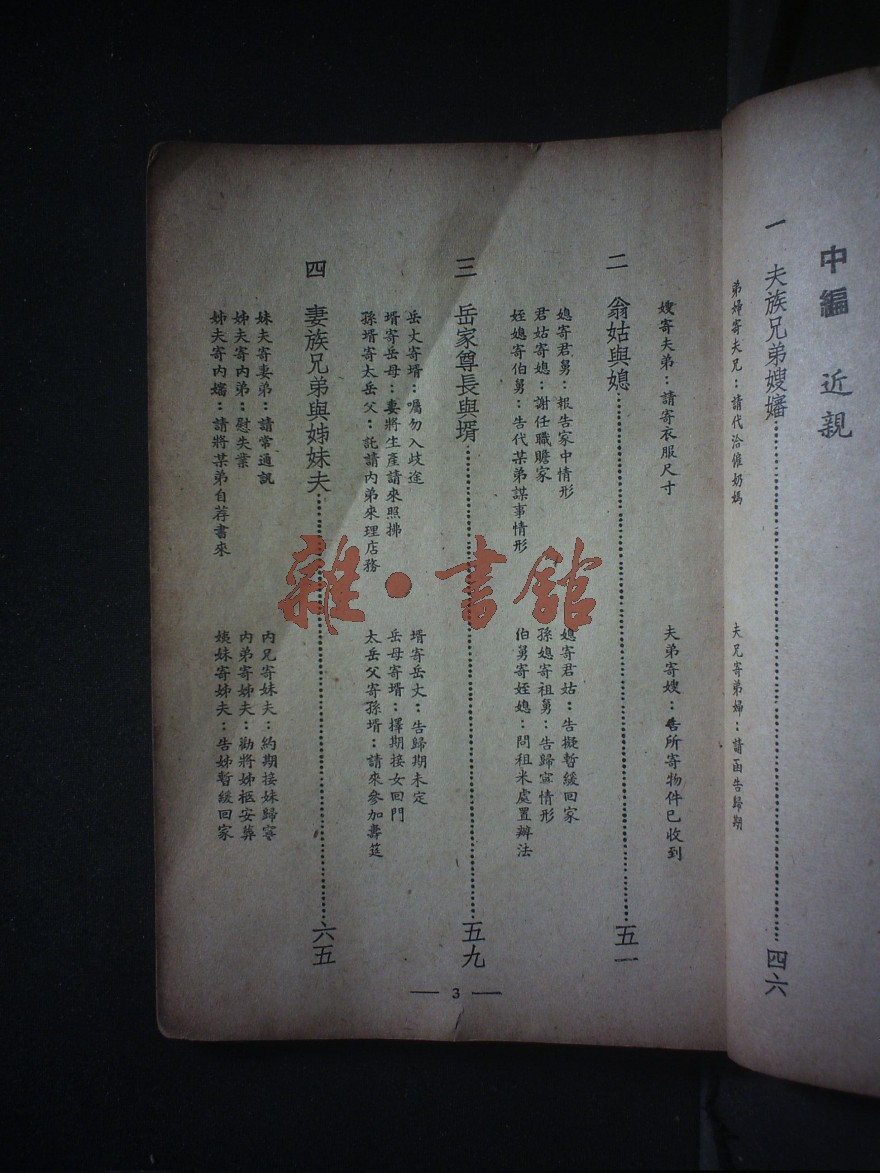 中編 近親
一 夫族兄弟嫂嬸……四六
弟婦寄夫兄：請代洽僱奶媽
夫兄寄弟婦：請函告歸期
嫂寄夫弟：請寄衣服尺寸
夫弟寄嫂：告所寄物件已收到
二 翁姑與媳……五一
媳寄君舅：報告家中情形
媳寄君姑：告擬暫緩回家
君姑寄媳：謝任職贍家
孫媳寄祖舅：告歸寗情形
姪媳寄伯舅：告代某弟謀事情形
伯舅寄姪媳：問租米處置辦法
三 岳家尊長與壻……五九
岳丈寄壻：囑勿入歧途
壻寄岳丈：告歸期未定
壻寄岳母：妻將生產請來照拂
岳母寄壻：擇期接女回門
孫壻寄太岳父：託請內弟來理店務
太岳父寄孫壻：請來參加壽筵
四 妻族兄弟與姊妹夫……六五
妹夫寄妻弟：請常通訊
內兄寄妹夫：約期接妹歸寗
姊夫寄內弟：慰失業
內弟寄姊夫：勸將姊柩安葬
姊夫寄內嬸：請將某弟自荐書來
姨妹寄姊夫：告姊暫緩回家
— 3 —
雜·書館